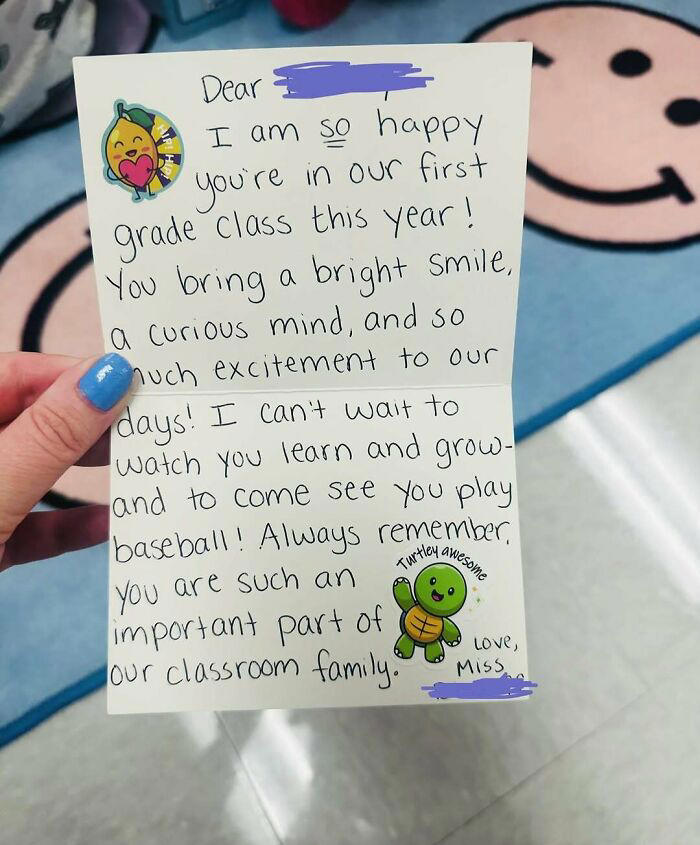 Dear
I am so happy
you're in our first
grade class this year!
You bring a bright smile,
a curious mind, and so
much excitement to our
days! I can't wait to
watch you learn and grow-
and to come see you play
baseball! Always remember,
you are such an
important part of
our classroom family.
HIP! HIP!
Turtley awesome
Love,
Miss